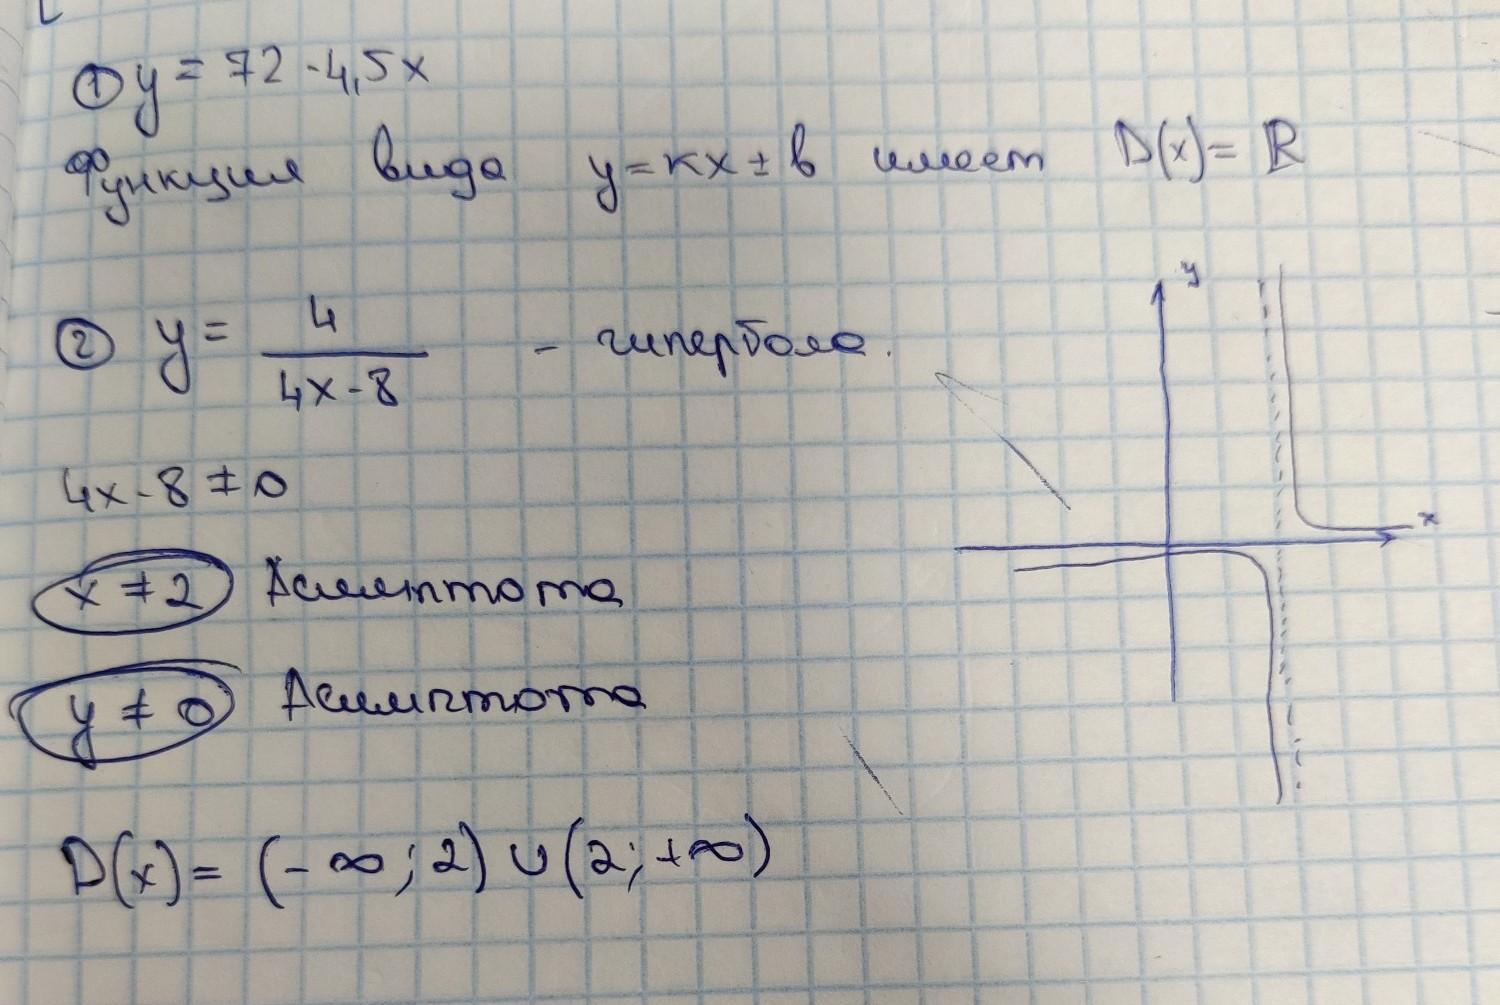 ① y = 72 - 4,5x
Функция вида y = kx ± b имеет D(x) = ℝ
② y = 4/(4x - 8) - гипербола.
4x - 8 ≠ 0
x ≠ 2 Асимптота
y ≠ 0 Асимптота
D(x) = (-∞; 2) ∪ (2; +∞)
y
x